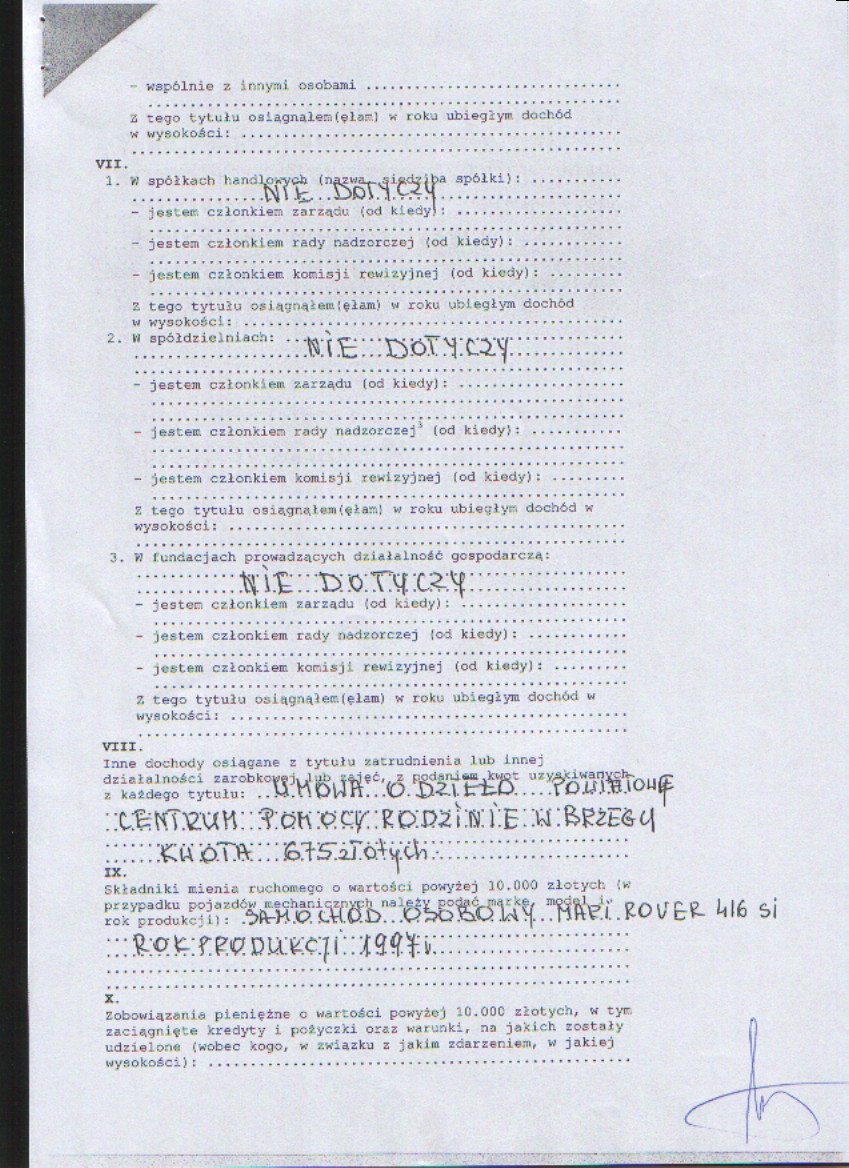 - wspólnie z innymi osobami ................................
................................................................
Z tego tytułu osiągnąłem(ęłam) w roku ubiegłym dochód
w wysokości: ...................................................
................................................................
VII.
1. W spółkach handlowych (nazwa, siedziba spółki): ............
NIE DOTYCZY
- jestem członkiem zarządu (od kiedy): ......................
................................................................
- jestem członkiem rady nadzorczej (od kiedy): .............
................................................................
- jestem członkiem komisji rewizyjnej (od kiedy): ..........
................................................................
Z tego tytułu osiągnąłem(ęłam) w roku ubiegłym dochód
w wysokości: ...................................................
2. W spółdzielniach: ...........................................
NIE DOTYCZY
................................................................
- jestem członkiem zarządu (od kiedy): ......................
................................................................
................................................................
- jestem członkiem rady nadzorczej³ (od kiedy): ............
................................................................
................................................................
- jestem członkiem komisji rewizyjnej (od kiedy): .........
................................................................
Z tego tytułu osiągnąłem(ęłam) w roku ubiegłym dochód w
wysokości: .....................................................
................................................................
3. W fundacjach prowadzących działalność gospodarczą:
NIE DOTYCZY
- jestem członkiem zarządu (od kiedy): ......................
................................................................
- jestem członkiem rady nadzorczej (od kiedy): .............
................................................................
- jestem członkiem komisji rewizyjnej (od kiedy): .........
................................................................
Z tego tytułu osiągnąłem(ęłam) w roku ubiegłym dochód w
wysokości: .....................................................
................................................................
VIII.
Inne dochody osiągane z tytułu zatrudnienia lub innej
działalności zarobkowej lub zajęć, z podaniem kwot uzyskiwanych
z każdego tytułu: UMOWA O DZIEŁO POWIATOWE
CENTRUM POMOCY RODZINIE W BRZEGU
KWOTA 675 złotych.
IX.
Składniki mienia ruchomego o wartości powyżej 10.000 złotych (w
przypadku pojazdów mechanicznych należy podać markę, model i
rok produkcji): SAMOCHÓD OSOBOWY MARKI ROVER 416 Si
ROK PRODUKCJI 1997r.
................................................................
................................................................
X.
Zobowiązania pieniężne o wartości powyżej 10.000 złotych, w tym
zaciągnięte kredyty i pożyczki oraz warunki, na jakich zostały
udzielone (wobec kogo, w związku z jakim zdarzeniem, w jakiej
wysokości): ....................................................